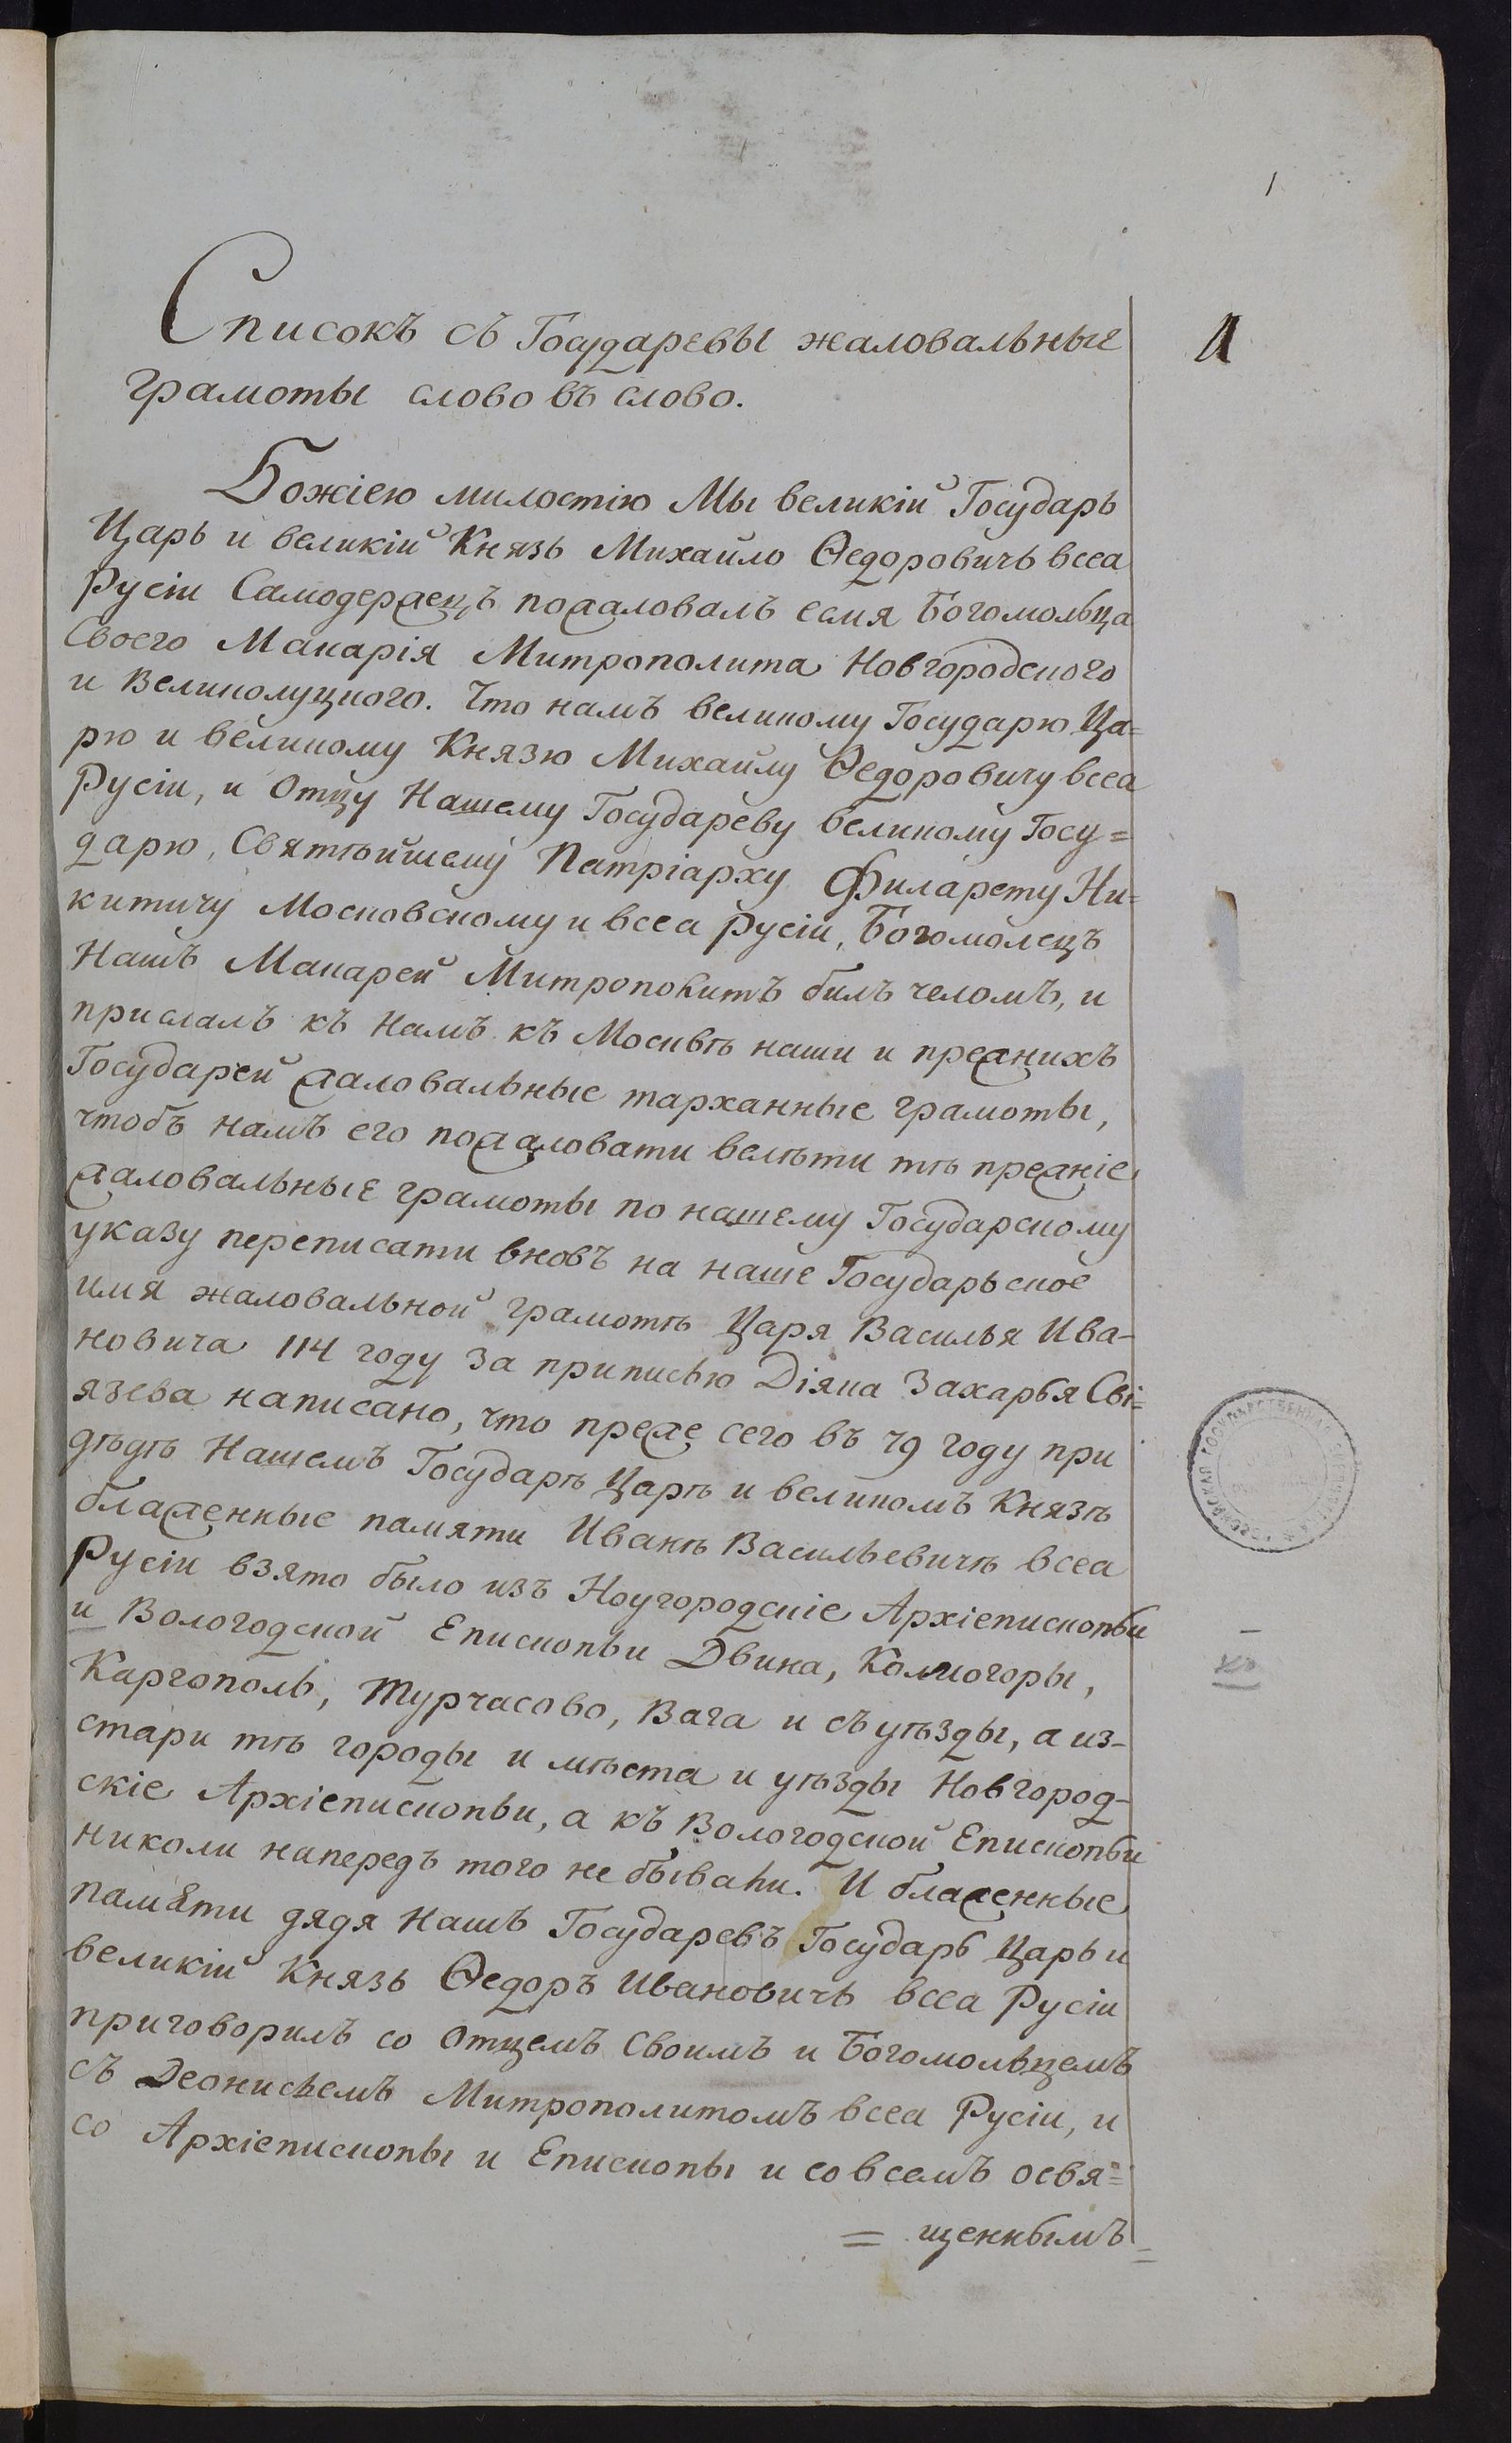 1
Списокъ съ Государевы жаловальные
грамоты слово въ слово.
Божіею милостію Мы великій Государь
Царь и великій Князь Михайло Ѳедоровичь всеа
Русіи Самодержецъ пожаловалъ есмя Богомольца
Своего Макарія Митрополита Новгородского
и Великолуцкого. Что намъ великому Государю Ца=
рю и великому Князю Михайлу Ѳедоровичу всеа
Русіи, и Отцу Нашему Государеву великому Госу=
дарю, Святѣйшему Патріарху Филарету Ни=
китичу Московскому и всеа Русіи, Богомолецъ
Нашъ Макарей Митрополитъ билъ челомъ, и
прислалъ къ Намъ къ Москвѣ наши и прежнихъ
Государей жаловальные тарханные грамоты,
чтобъ намъ его пожаловати велѣти тѣ прежніе
жаловальные грамоты по нашему Государскому
указу переписати вновъ на наше Государьское
имя жаловальной грамотѣ Царя Василья Ива-
новича 114 году за приписью Діяка Захарья Сві=
язева написано, что преже сего въ 79 году при
дѣдѣ Нашемъ Государѣ Царѣ и великомъ Князѣ
блаженные памяти Иванѣ Васильевичѣ всеа
Русіи взято было изъ Ноугородскіе Архіепископьи
и Вологодской Епископьи Двина, Колмогоры,
Каргополь, Турчасово, Вага и съ уѣзды, а из-
стари тѣ городы и мѣста и уѣзды Новгород-
скіе Архіепископьи, а къ Вологодской Епископьи
николи напередъ того не бывали. И блаженные
памяти дядя Нашъ Государевъ Государь Царь и
великій Князь Ѳедоръ Ивановичь всеа Русіи
приговорилъ со Отцемъ Своимъ и Богомольцемъ
съ Деонисьемъ Митрополитомъ всеа Русіи, и
со Архіепископы и Епископы и со всемъ освя=
= щеннымъ